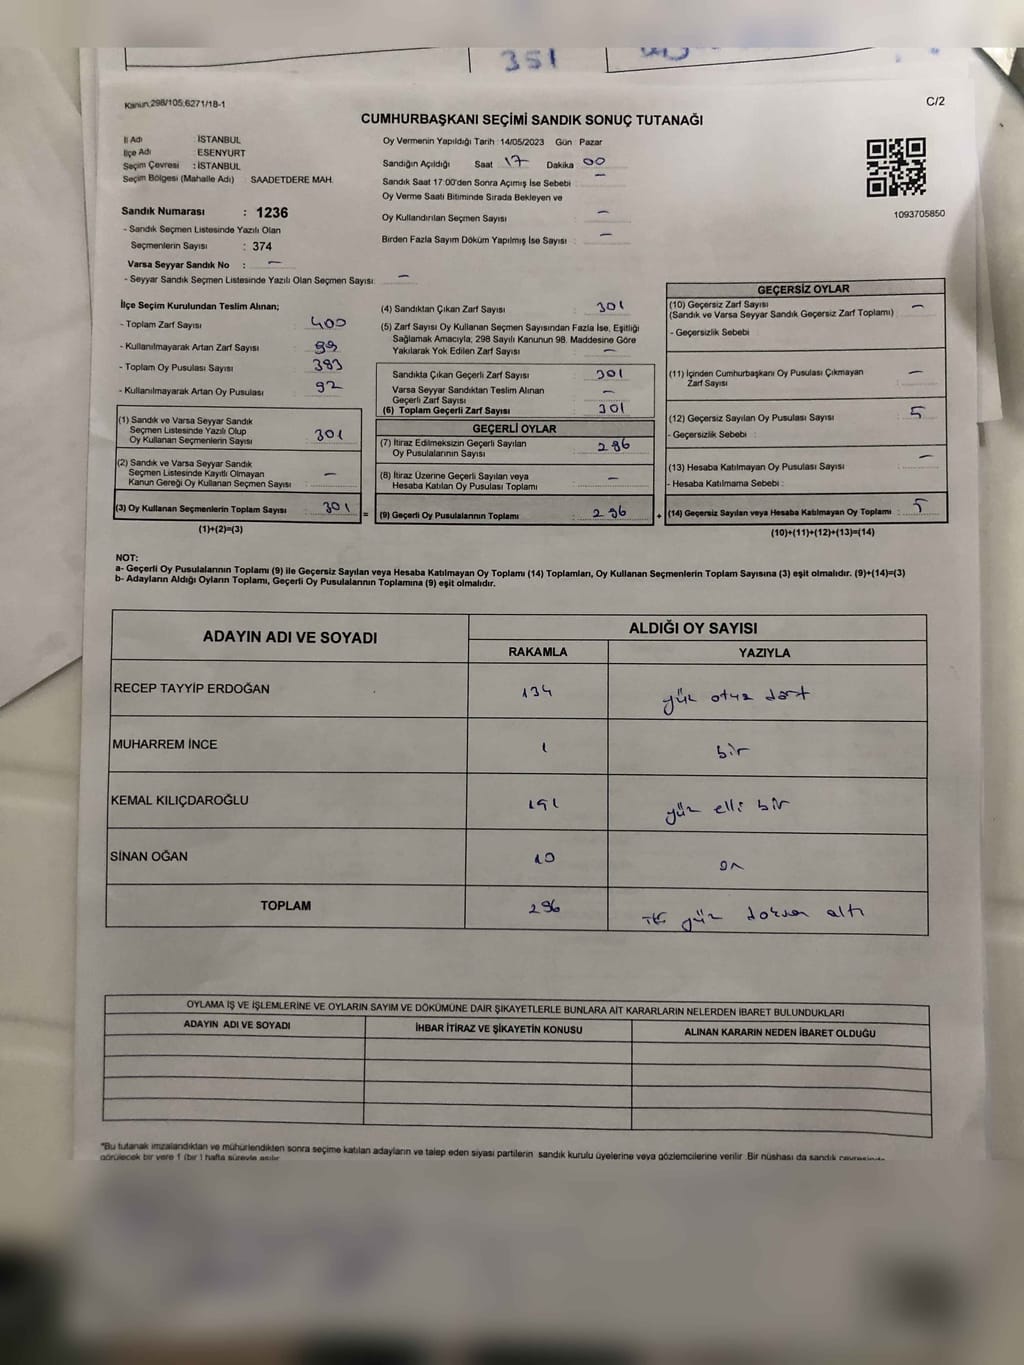 351
Kanun,298/105,6271/18-1
C/2
CUMHURBAŞKANI SEÇİMİ SANDIK SONUÇ TUTANAĞI
İl Adı : İSTANBUL
İlçe Adı : ESENYURT
Seçim Çevresi : İSTANBUL
Seçim Bölgesi (Mahalle Adı) : SAADETDERE MAH.
Sandık Numarası : 1236
- Sandık Seçmen Listesinde Yazılı Olan
Seçmenlerin Sayısı : 374
Varsa Seyyar Sandık No : –
- Seyyar Sandık Seçmen Listesinde Yazılı Olan Seçmen Sayısı: –
Oy Vermenin Yapıldığı Tarih : 14/05/2023 Gün : Pazar
Sandığın Açıldığı Saat 17 Dakika 00
Sandık Saat 17:00'den Sonra Açımış İse Sebebi : –
Oy Verme Saati Bitiminde Sırada Bekleyen ve
Oy Kullandırılan Seçmen Sayısı : –
Birden Fazla Sayım Döküm Yapılmış İse Sayısı : –
1093705850
İlçe Seçim Kurulundan Teslim Alınan;
- Toplam Zarf Sayısı : 400
- Kullanılmayarak Artan Zarf Sayısı : 99
- Toplam Oy Pusulası Sayısı : 393
- Kullanılmayarak Artan Oy Pusulası : 92
(1) Sandık ve Varsa Seyyar Sandık
Seçmen Listesinde Yazılı Olup
Oy Kullanan Seçmenlerin Sayısı : 301
(2) Sandık ve Varsa Seyyar Sandık
Seçmen Listesinde Kayıtlı Olmayan
Kanun Gereği Oy Kullanan Seçmen Sayısı : –
(3) Oy Kullanan Seçmenlerin Toplam Sayısı : 301
(1)+(2)=(3)
(4) Sandıktan Çıkan Zarf Sayısı : 301
(5) Zarf Sayısı Oy Kullanan Seçmen Sayısından Fazla İse, Eşitliği
Sağlamak Amacıyla; 298 Sayılı Kanunun 98. Maddesine Göre
Yakılarak Yok Edilen Zarf Sayısı : –
Sandıkta Çıkan Geçerli Zarf Sayısı : 301
Varsa Seyyar Sandıktan Teslim Alınan
Geçerli Zarf Sayısı : –
(6) Toplam Geçerli Zarf Sayısı : 301
GEÇERLİ OYLAR
(7) İtiraz Edilmeksizin Geçerli Sayılan
Oy Pusulalarının Sayısı : 296
(8) İtiraz Üzerine Geçerli Sayılan veya
Hesaba Katılan Oy Pusulası Toplamı : –
= (9) Geçerli Oy Pusulalarının Toplamı : 296
GEÇERSİZ OYLAR
(10) Geçersiz Zarf Sayısı
(Sandık ve Varsa Seyyar Sandık Geçersiz Zarf Toplamı) : –
- Geçersizlik Sebebi :
(11) İçinden Cumhurbaşkanı Oy Pusulası Çıkmayan
Zarf Sayısı : –
(12) Geçersiz Sayılan Oy Pusulası Sayısı : 5
- Geçersizlik Sebebi :
(13) Hesaba Katılmayan Oy Pusulası Sayısı : –
- Hesaba Katılmama Sebebi :
+ (14) Geçersiz Sayılan veya Hesaba Katılmayan Oy Toplamı : 5
(10)+(11)+(12)+(13)=(14)
NOT:
a- Geçerli Oy Pusulalarının Toplamı (9) ile Geçersiz Sayılan veya Hesaba Katılmayan Oy Toplamı (14) Toplamları, Oy Kullanan Seçmenlerin Toplam Sayısına (3) eşit olmalıdır. (9)+(14)=(3)
b- Adayların Aldığı Oyların Toplamı, Geçerli Oy Pusulalarının Toplamına (9) eşit olmalıdır.
ADAYIN ADI VE SOYADI
ALDIĞI OY SAYISI
RAKAMLA YAZIYLA
RECEP TAYYİP ERDOĞAN 134 yüz otuz dört
MUHARREM İNCE 1 bir
KEMAL KILIÇDAROĞLU 151 yüz elli bir
SİNAN OĞAN 10 on
TOPLAM 296 yüz doksan altı
OYLAMA İŞ VE İŞLEMLERİNE VE OYLARIN SAYIM VE DÖKÜMÜNE DAİR ŞİKAYETLERLE BUNLARA AİT KARARLARIN NELERDEN İBARET BULUNDUKLARI
ADAYIN ADI VE SOYADI İHBAR İTİRAZ VE ŞİKAYETİN KONUSU ALINAN KARARIN NEDEN İBARET OLDUĞU
*Bu tutanak imzalandıktan ve mühürlendikten sonra seçime katılan adayların ve talep eden siyasi partilerin sandık kurulu üyelerine veya gözlemcilerine verilir. Bir nüshası da sandık çevresinde
görülecek bir yere 1 (bir) hafta süreyle asılır.